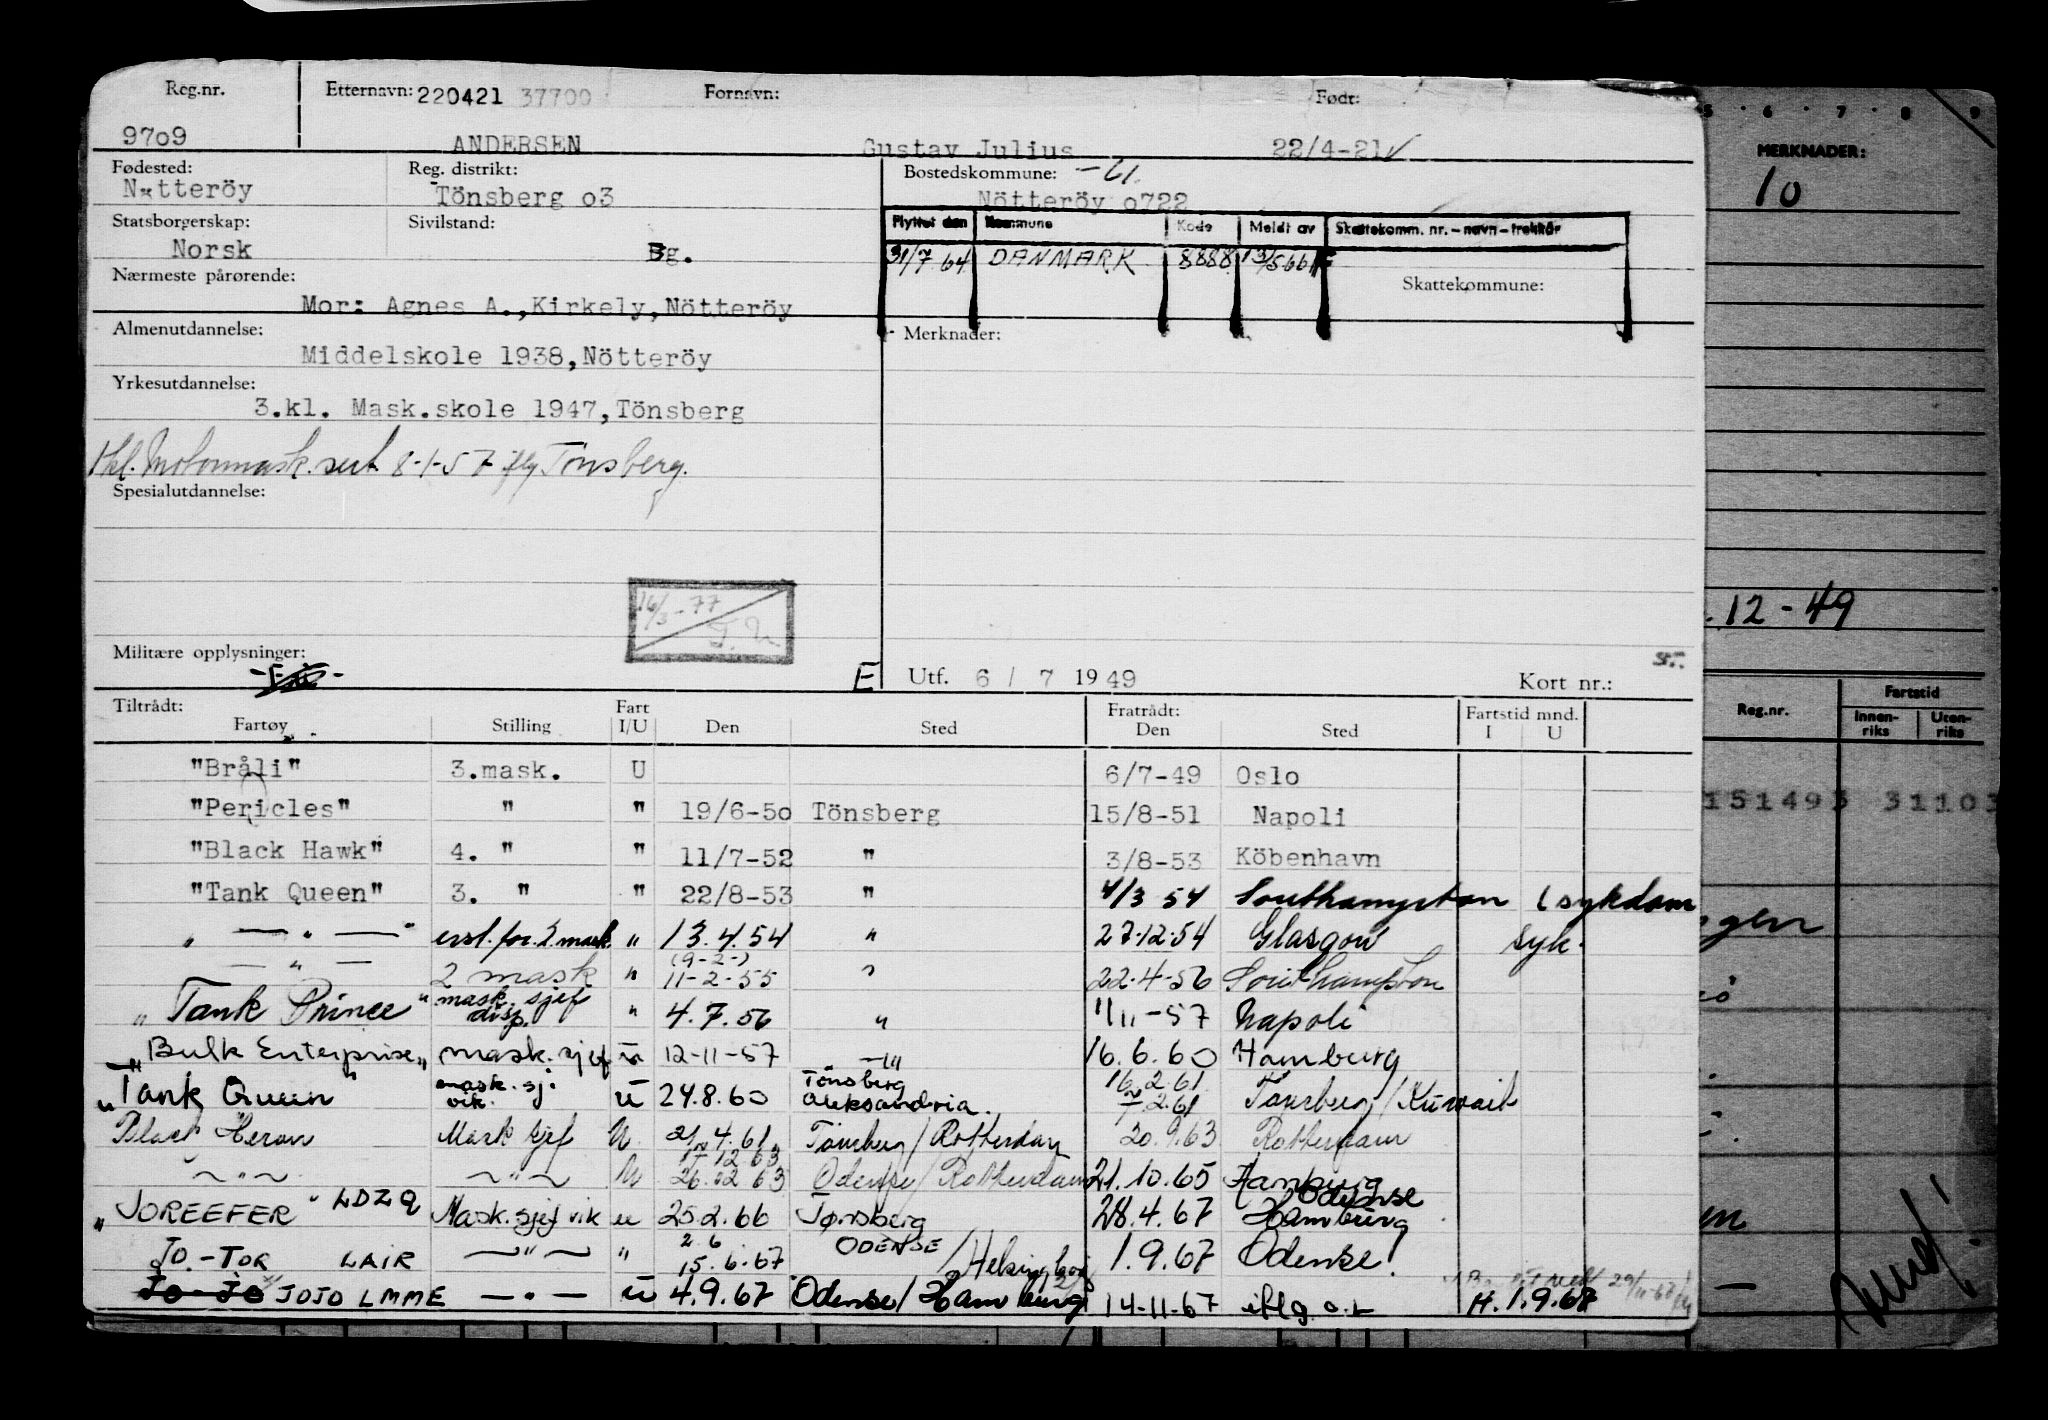 Reg.nr. Etternavn: 220421 37700 Fornavn: Født:
9709 ANDERSEN Gustav Julius 22/4-21
Fødested: Reg. distrikt: Bostedskommune: -61.
Nøtteröy Tönsberg o3 Nötteröy o722
Statsborgerskap: Sivilstand: Flyttet den Kommune Kode Meldt av Skattekomm. nr. - navn - trekkår
Norsk g. 31/7 64 DANMARK 8888
Nærmeste pårørende: Skattekommune:
Mor: Agnes A.,Kirkely,Nötteröy
Almenutdannelse: Merknader:
Middelskole 1938,Nötteröy
Yrkesutdannelse:
3.kl. Mask.skole 1947,Tönsberg
Motormask. sert. 8-1-57 iflg Tönsberg.
Spesialutdannelse:
16/3-77
Militære opplysninger:
E Utf. 6 / 7 1949 Kort nr.:
Tiltrådt: Fart Fratrådt: Fartstid mnd.
Fartøy Stilling I/U Den Sted Den Sted I U
"Bråli" 3.mask. U 6/7-49 Oslo
"Pericles" " " 19/6-50 Tönsberg 15/8-51 Napoli
"Black Hawk" 4. " " 11/7-52 " 3/8-53 Köbenhavn
"Tank Queen" 3. " " 22/8-53 " 4/3 54 Southampton (sykdom
" — " — " erst. for. 2 mask. " 13.4.54 " 27.12.54 Glasgow syk.
— " — 2 mask " (9-2-) 11-2-55 " 22.4-56 Southampton
"Tank Prince" mask. sjef disp. " 4.7.56 " 1/11-57 Napoli
"Bulk Enterprise" mask. sjef u 12-11-57 —"— 16.6.60 Hamburg
"Tank Queen" mask. sj. vik. u 24.8.60 Tönsberg Aleksandria. 16.2.61 Tönsberg/Kuwait
Black Heron Mask sjef U 4.61 Tönsberg/Rotterdam 20.9.63 Rotterdam
~ " ~ ~ " ~ U 17.12.63 26.12 63 Odense/Rotterdam 21.10.65 Hamburg
"JOREEFER" LDZQ Mask. sjef vik u 25.2.66 Tønsberg 28.4.67 Odense Hamburg
JO.-TOR LAIR — " — " 2.6 15.6.67 ODENSE / Helsingborg 1.9.67 Odense!
Jo-Jo JOJO LMME — " — u 4.9.67 Odense/Hamburg 14-11-67 iflg. o.k H. 1.9.67
5 . 6 . 7 . 8 . 9
MERKNADER:
10
.12-49
Reg.nr. Fartstid
Innen-riks Uten-riks
151493 31103